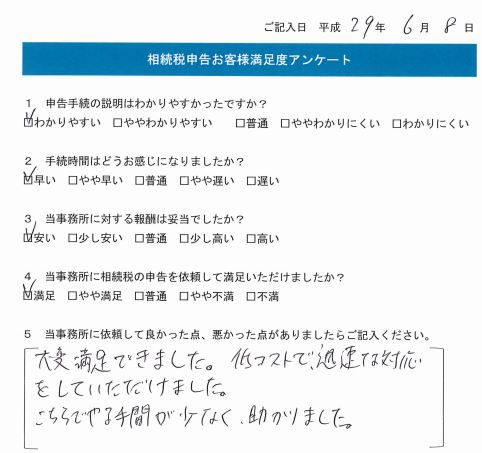 ご記入日　平成 29年 6月 8日
相続税申告お客様満足度アンケート
1　申告手続の説明はわかりやすかったですか？
☑わかりやすい　□ややわかりやすい　□普通　□ややわかりにくい　□わかりにくい
2　手続時間はどうお感じになりましたか？
☑早い　□やや早い　□普通　□やや遅い　□遅い
3　当事務所に対する報酬は妥当でしたか？
☑安い　□少し安い　□普通　□少し高い　□高い
4　当事務所に相続税の申告を依頼して満足いただけましたか？
☑満足　□やや満足　□普通　□やや不満　□不満
5　当事務所に依頼して良かった点、悪かった点がありましたらご記入ください。
大変満足できました。低コストで、迅速な対応
をしていただけました。
こちらでやる手間が少なく、助かりました。